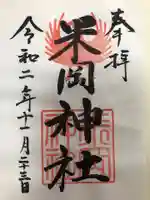 奉拝
米岡神社
令和二年十一月二十三日